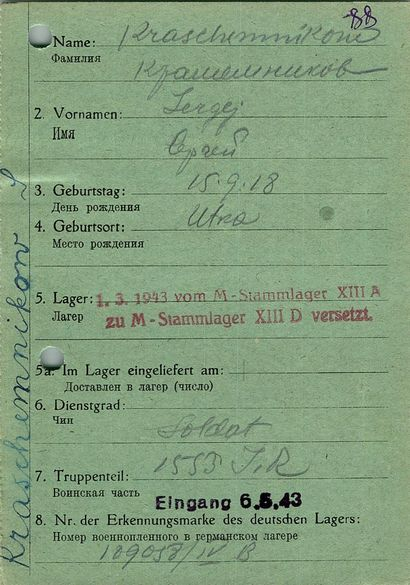 88
Name: Kraschemnikow
Фамилия Крашемников
2. Vornamen: Sergej
Имя Сергей
3. Geburtstag: 15.9.18
День рождения
4. Geburtsort: Utka
Место рождения
5. Lager: 1.3.1943 vom M-Stammlager XIII A
Лагер zu M-Stammlager XIII D versetzt.
5a. Im Lager eingeliefert am:
Доставлен в лагер (число)
6. Dienstgrad:
Чин Soldat
7. Truppenteil: 1553 I.R
Воинская часть Eingang 6.5.43
8. Nr. der Erkennungsmarke des deutschen Lagers:
Номер военнопленного в германском лагере
109058/IV B
Kraschemnikow S